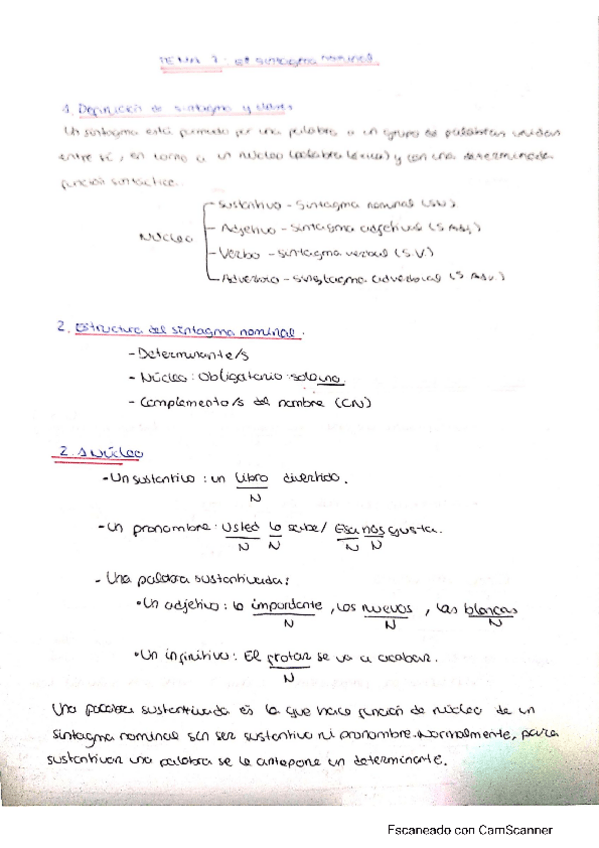 TEMA 7: El sintagma nominal
1. Definición de sintagma y clases
Un sintagma está formado por una palabra o un grupo de palabras unidas
entre sí, en torno a un núcleo (palabra léxica) y con una determinada
función sintáctica.
Núcleo
Sustantivo - Sintagma nominal (SN)
Adjetivo - Sintagma adjetival (S Adj)
Verbo - Sintagma verbal (S.V.)
Adverbio - Sintagma adverbial (S Adv)
2. Estructura del sintagma nominal.
- Determinante/s
- Núcleo: Obligatorio solo uno.
- Complemento/s del nombre (CN)
2.1 Núcleo
- Un sustantivo: un libro divertido.
N
- Un pronombre: Usted lo sabe/ Esa nos gusta.
N N N N
- Una palabra sustantivada:
• Un adjetivo: lo importante, los nuevos, las blancas
N N N
• Un infinitivo: El se va a acabar.
N
Una palabra sustantivada es la que hace función de núcleo de un
sintagma nominal sin ser sustantivo ni pronombre. Normalmente, para
sustantivar una palabra se le antepone un determinante.
Escaneado con CamScanner